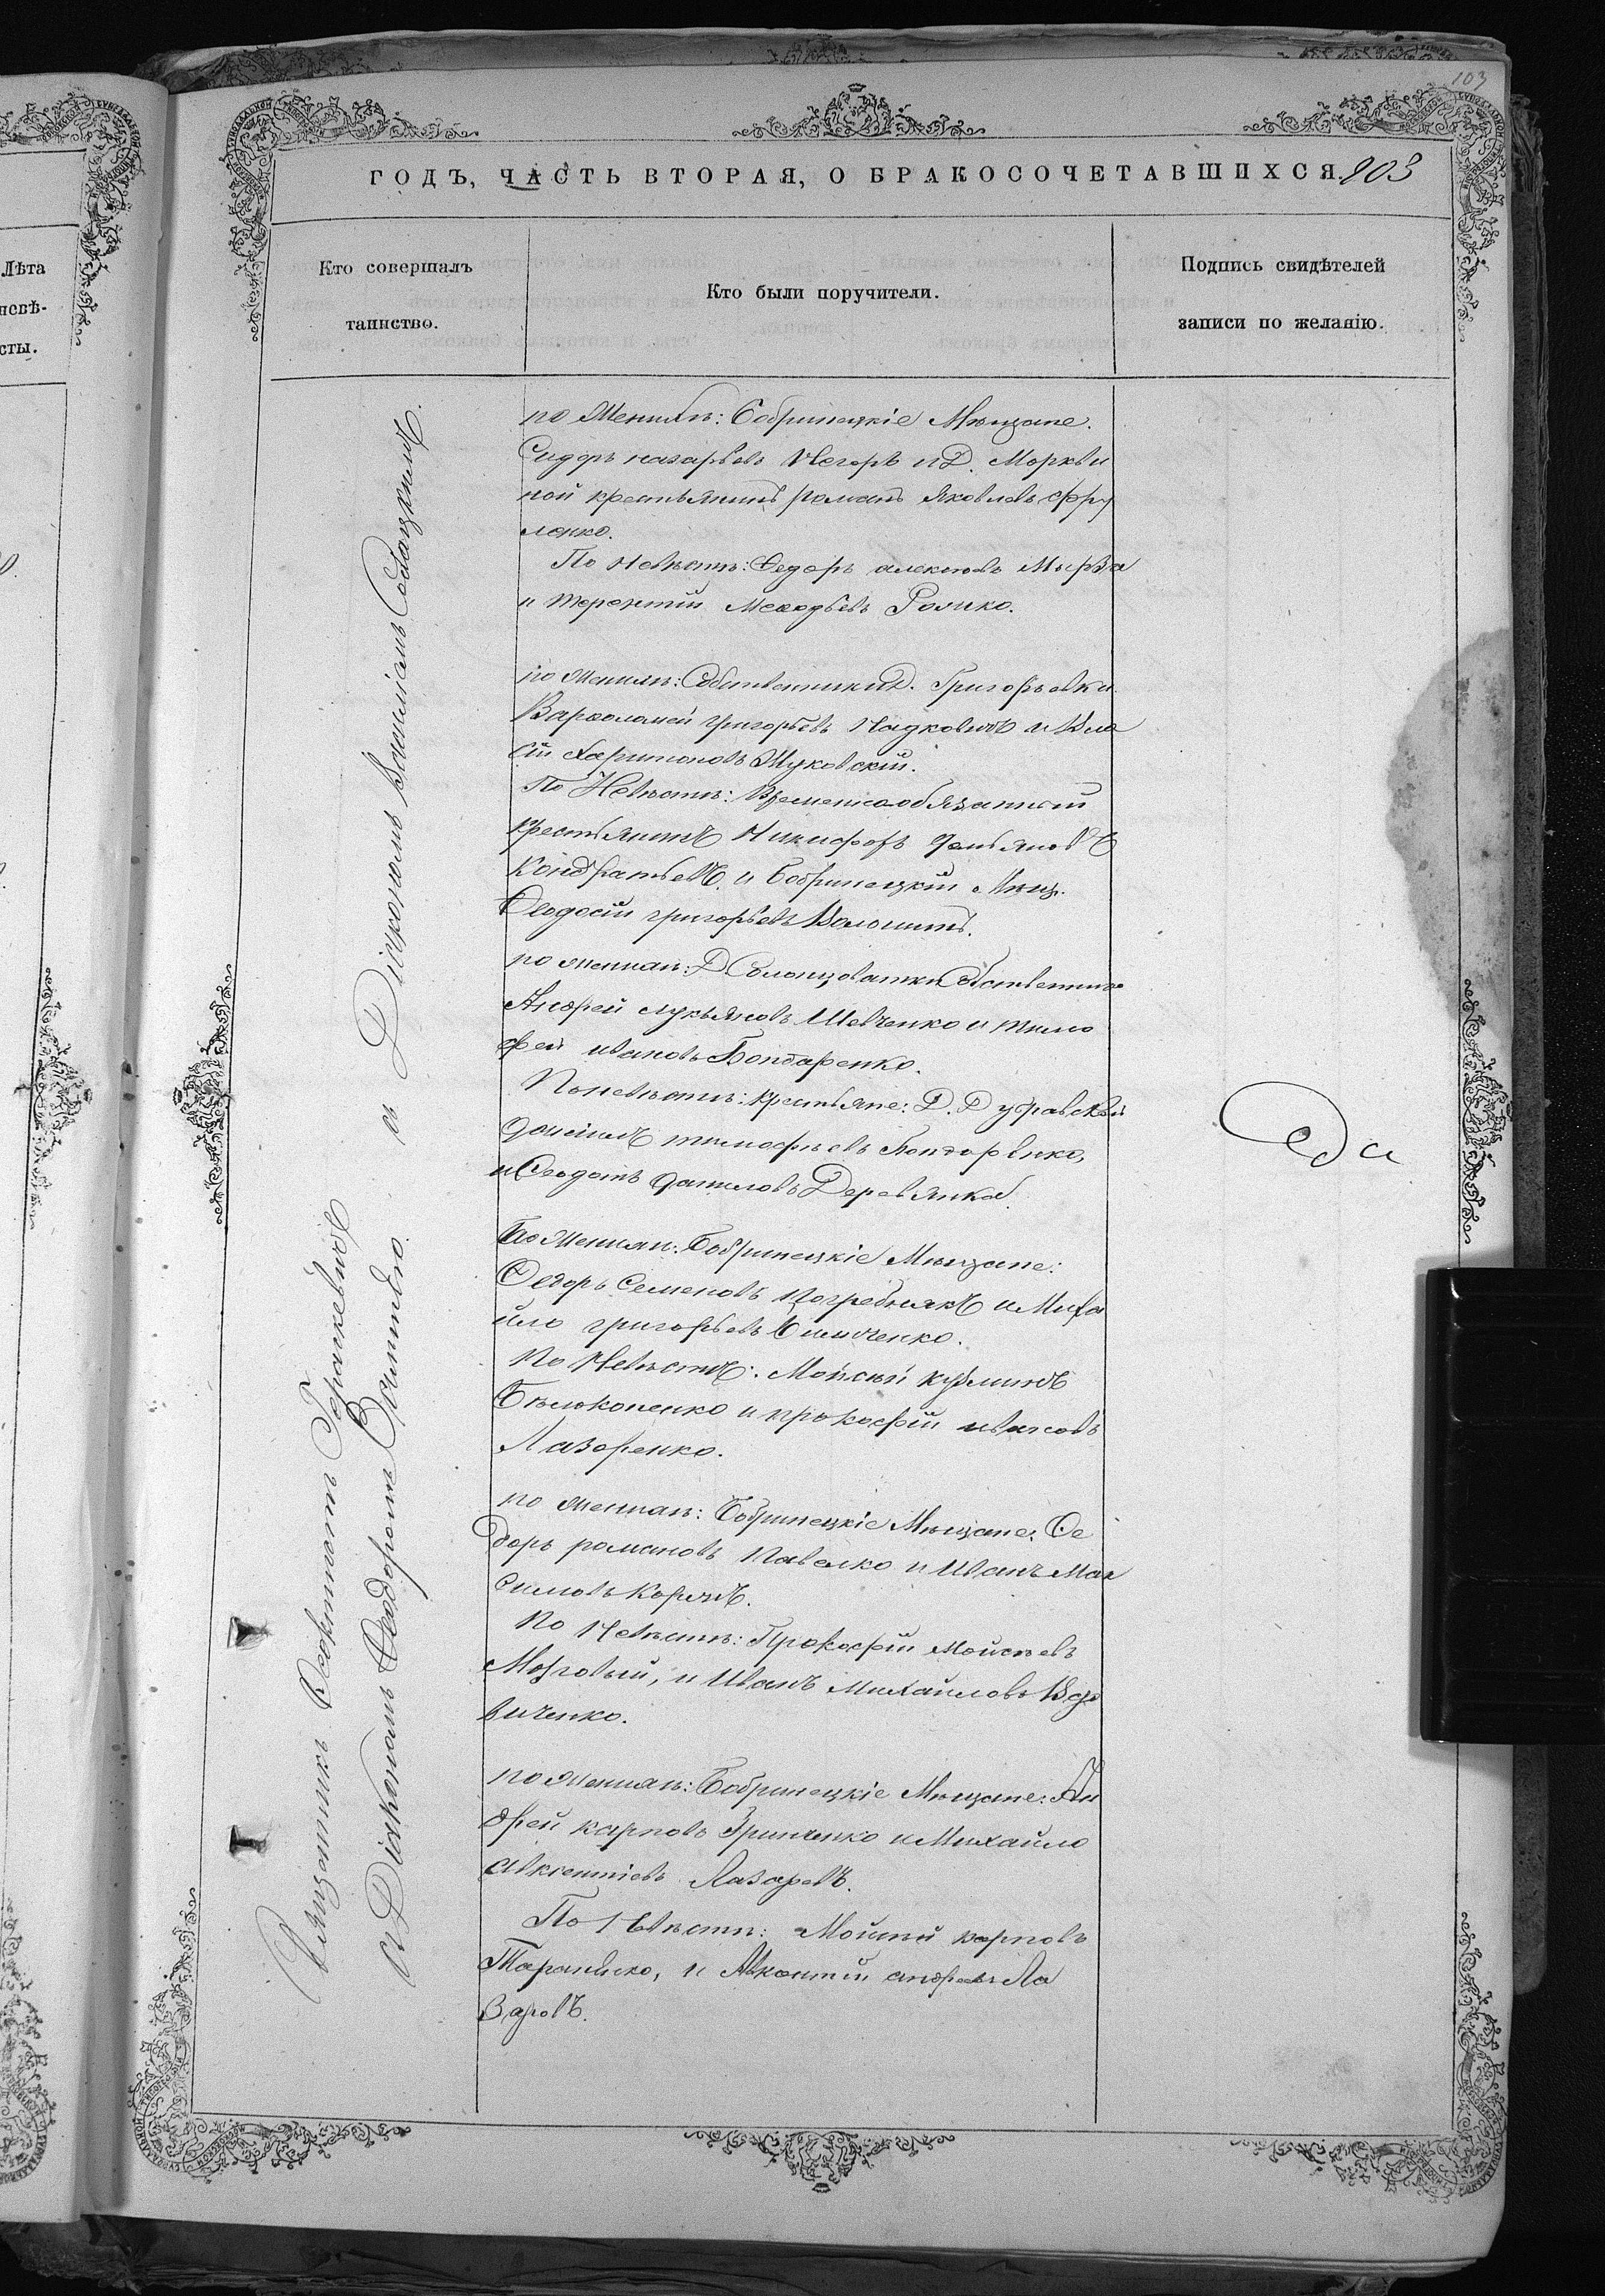 103
ГОДЪ, ЧАСТЬ ВТОРАЯ, О БРАКОСОЧЕТАВШИХСЯ. 103
Лѣта
невѣ-
сты.
Кто совершалъ
таинство.
Кто были поручители.
Подпись свидѣтелей
записи по желанію.
Священникъ Феоктистъ
и Діакономъ Феодоромъ
и Діакономъ Василіемъ
по Женихѣ: Бобринецкіе Мѣщане.
Сидоръ назарьевъ и Д. Моркви
ной крестьянинъ романъ яковлевъ фру
ленко.
По Невѣстѣ: Федоръ Мырза
и терентій
по Женихѣ: Собственники Д. Григорьевки
Варфоломей григорьевъ и Вла
сій Харитоновъ Жуковскій.
По Невѣстѣ: Временнообязанный
крестьянинъ Никифоръ демьяновъ
Кондратьевъ и Бобринецкій Мѣщ.
Феодосій григорьевъ Волошинъ.
по женихѣ: Д. Солонцоватки Собственники
Андрей лукьяновъ Шевченко и тимо
фей ивановъ Бондаренко.
По невѣстѣ: крестьяне: Д.
тимофѣевъ Бондаренко,
и Феодотъ даниловъ Деревянко.
По Женихѣ: Бобринецкіе Мѣщане:
Федоръ Семеновъ Погребнякъ и Миха
йло григорьевъ
По Невѣстѣ: Мойсей кузминъ
Бѣлоконенко и прокофій ивановъ
Лазоренко.
по женихѣ: Бобринецкіе Мѣщане: Фе
доръ романовъ Павелко и Иванъ Мак
симовъ
По Невѣстѣ: Прокофій Мойсѣевъ
Мозговый, и Иванъ Михайловъ
виченко.
по женихѣ: Бобринецкіе Мѣщане: Ан
дрей карповъ Гринченко и Михайло
авксентіевъ Лазаревъ.
По Невѣстѣ: Мойсей карповъ
Тараненко, и Авксентій андреевъ Ла
заровъ.